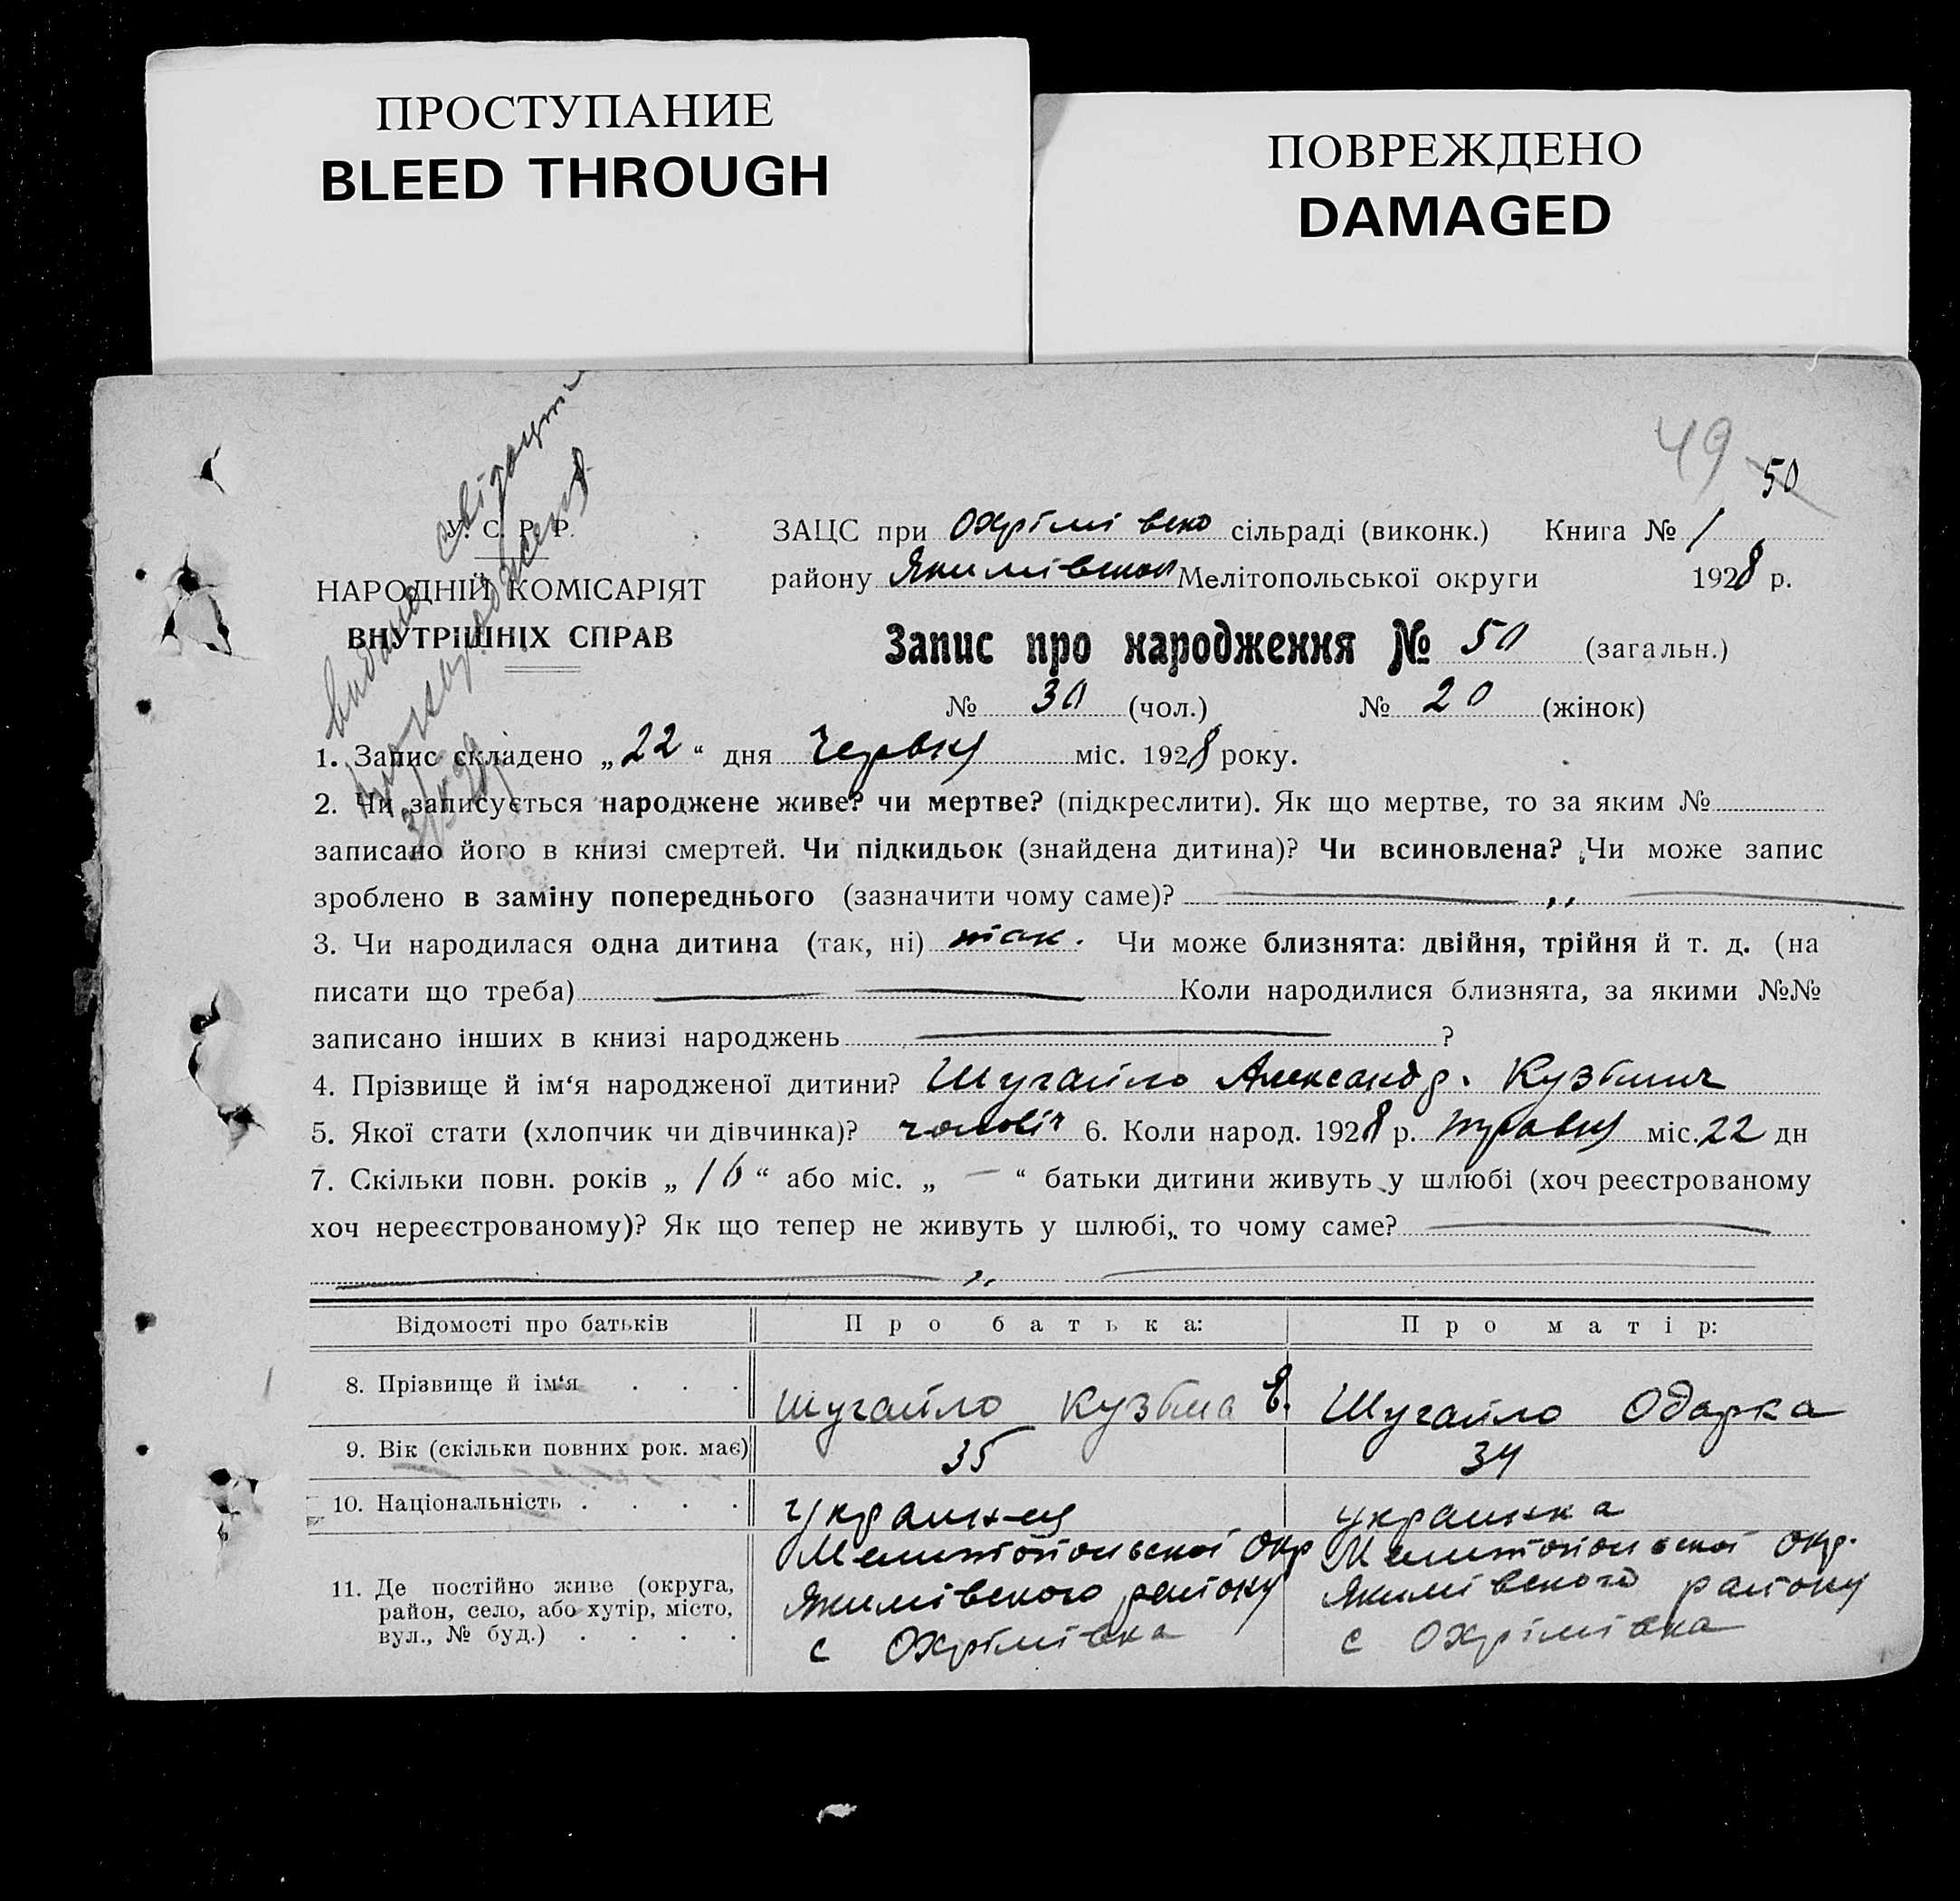 ПРОСТУПАНИЕ
BLEED THROUGH
ПОВРЕЖДЕНО
DAMAGED
49
50
У. С. Р. Р.
НАРОДНІЙ КОМІСАРІЯТ
ВНУТРІШНІХ СПРАВ
видано
ЗАЦС при Охрімівско сільраді (виконк.) Книга № 1
району Якимівськ Мелітопольської округи 1928 р.
Запис про народження № 50 (загальн.)
№ 30 (чол.) № 20 (жінок)
1. Запис складено „22“ дня Червня міс. 1928 року.
2. Чи записується народжене живе? чи мертве? (підкреслити). Як що мертве, то за яким №
записано його в книзі смертей. Чи підкидьок (знайдена дитина)? Чи всиновлена? Чи може запис
зроблено в заміну попереднього (зазначити чому саме)? — „ —
3. Чи народилася одна дитина (так, ні) так. Чи може близнята: двійня, трійня й т. д. (на
писати що треба) — — Коли народилися близнята, за якими №№
записано інших в книзі народжень — ?
4. Прізвище й ім‘я народженої дитини? Шугайло Александр. Кузьмич
5. Якої стати (хлопчик чи дівчинка)? чоловіч 6. Коли народ. 1928 р. травня міс. 22 дн
7. Скільки повн. років „16“ або міс. „ — “ батьки дитини живуть у шлюбі (хоч реєстрованому
хоч нереєстрованому)? Як що тепер не живуть у шлюбі, то чому саме? —
— „ —
Відомості про батьків Про батька: Про матір:
8. Прізвище й ім‘я . . . Шугайло Кузьма Є. Шугайло Одарка
9. Вік (скільки повних рок. має) 35 34
10. Національність . . . . Украинец украинка
11. Де постійно живе (округа, район, село, або хутір, місто, вул., № буд.) . . . .
Мелитопольскої Окр Мелитопольскої окр.
Якимівского району Якимівского району
с Охрімівка с Охрімівка